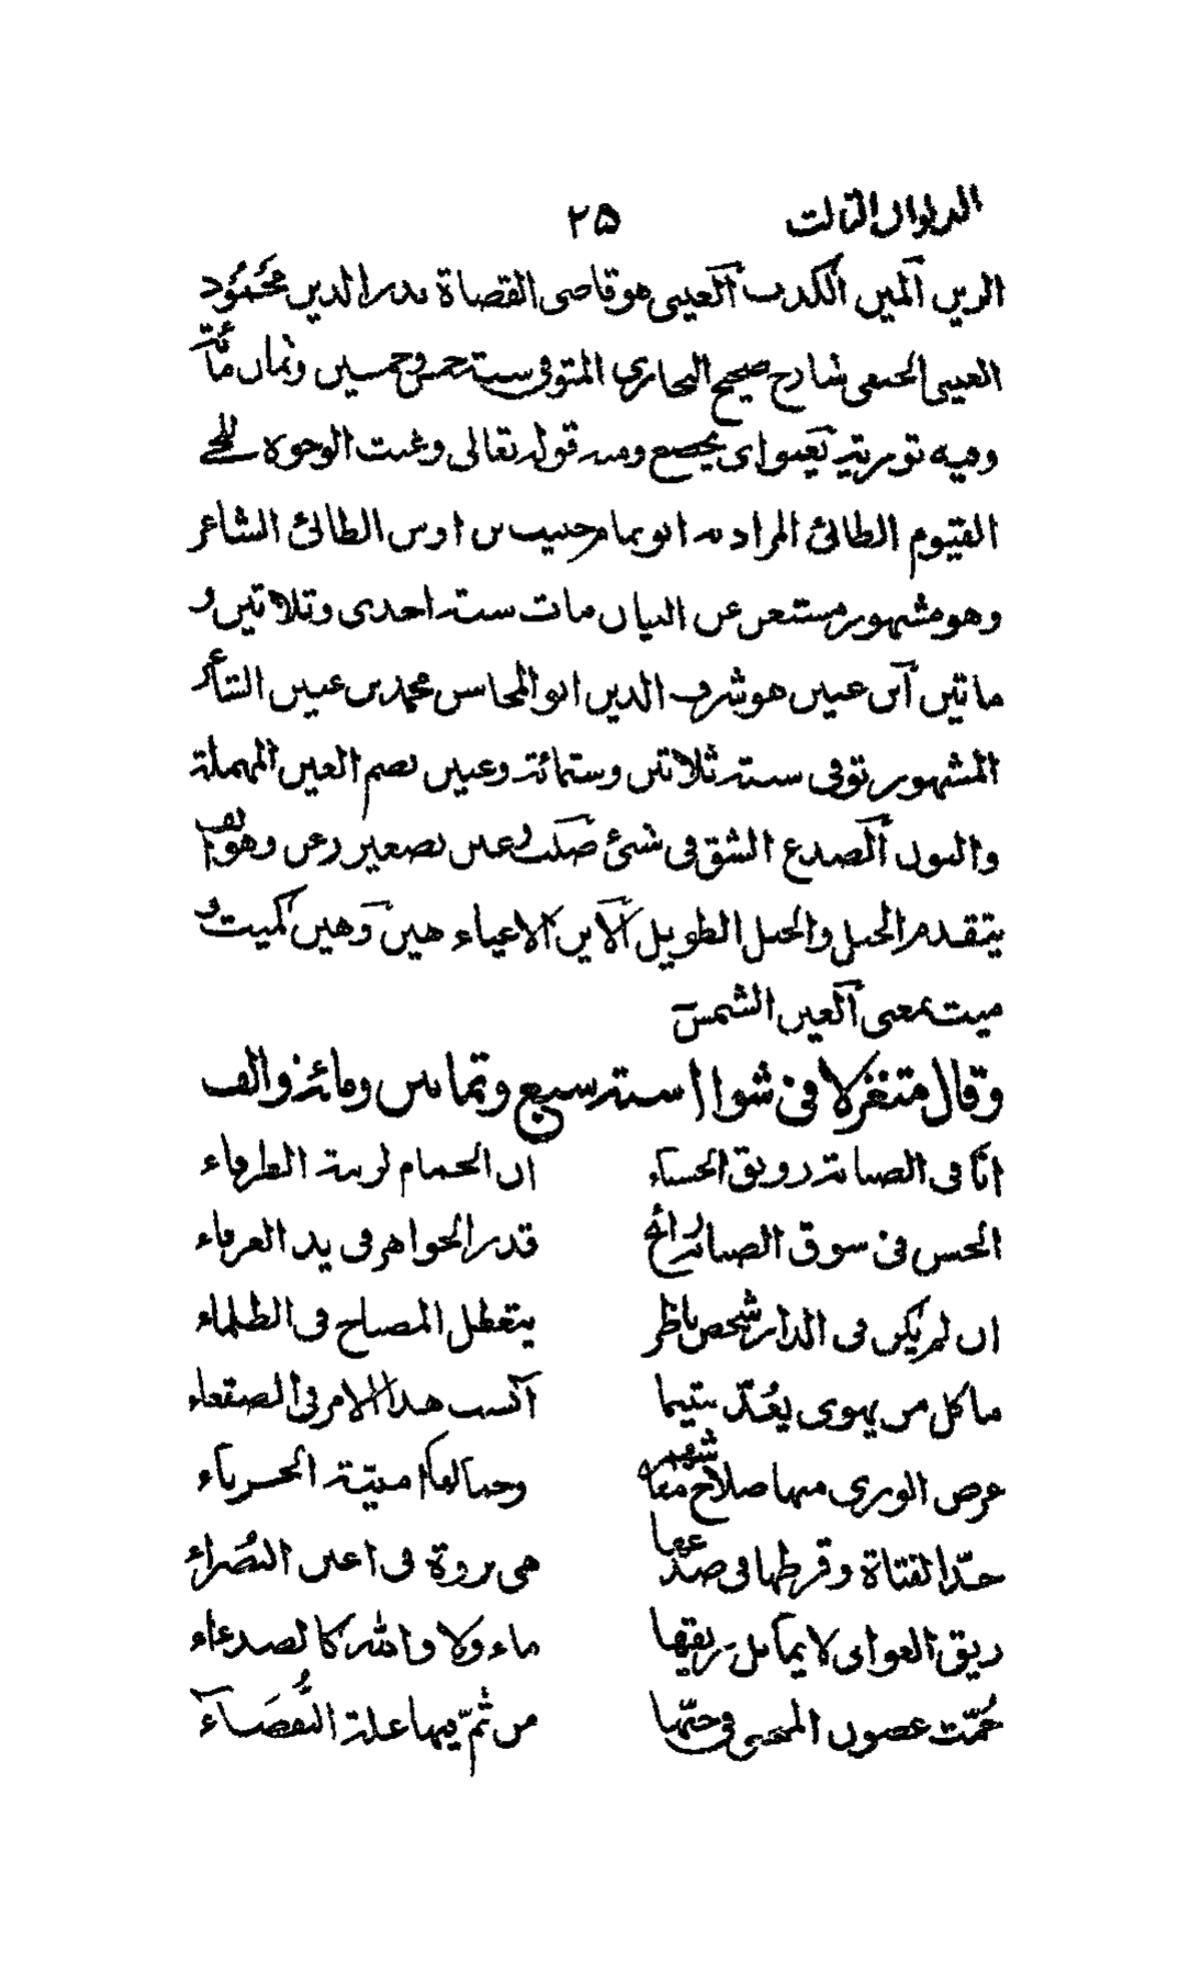 الديوان الثالث ٢٥
الرين المين الكذب العيني هو قاضى القضاة بدر الدين محمود
العينى الحنفى شارح صحيح البخارى المتوفى سنة خمس وخمسين وثمان مائة
وفيه تورية يعنو اى يخضع ومنه قوله تعالى وعنت الوجوه للحى
القيوم الطائى المراد به ابو تمام حبيب بن اوس الطائى الشاعر
وهو مشهور مستغن عن البيان مات سنة احدى وثلاثين و
مائتين ابن عنين هو شرف الدين ابو المحاسن محمد بن عنين الشاعر
المشهور توفى سنة ثلاثين وستمائة وعنين بضم العين المهملة
والنون الصدع الشق فى شئ صلب رعن تصغير رعن وهو انف
يتقدم الجبل والجبل الطويل الاين الاعياء هين وهين كميت و
ميت بمعنى العين الشمس
وقال متغزلا فى شوال سنة سبع وثمانين ومائة والف
انا فى الصبابة رونق الحسناء ان الحمام لزينة الطرفاء
الحسن فى سوق الصبابة رائج قدر الجواهر فى يد العرفاء
ان لم يكن فى الدار شخص ناظر يتعطل المصباح فى الظلماء
ما كل من يهوى يعد متيما انسب هذا الامر فى الصقعاء
غرض الورى منها صلاح شفاههم وحبالها امنية الحرباء
خد الفتاة وقرطها فى صدغها هى بروة فى اعين البصراء
ريق الغوانى لا يماثل ريقها ماء ولا والله كالصدعاء
عمت غصون المنحنى فى حبها من ثم فيها علة النفضاء